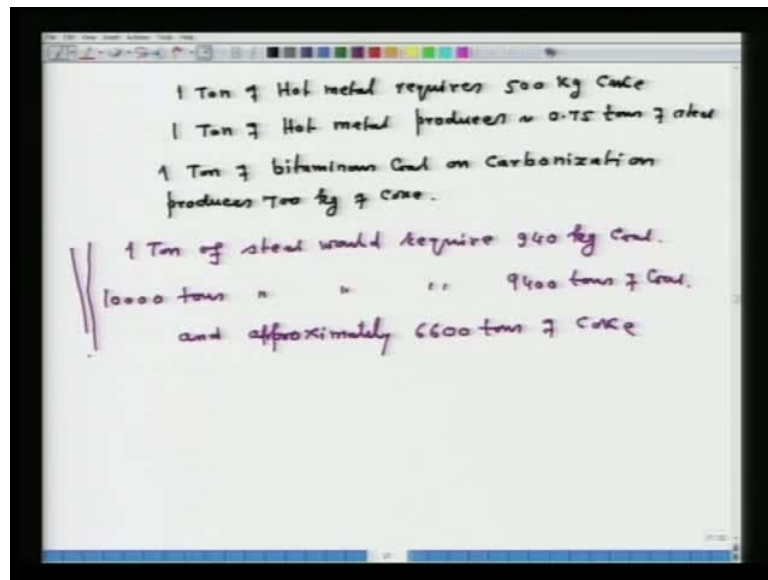 1 Ton of Hot metal requires 500 kg Coke
1 Ton of Hot metal produces ~ 0.75 ton of steel
1 Ton of bituminous Coal on Carbonization
produces 700 kg of Coke.
1 Ton of steel would require 940 kg Coal.
10000 tons " " " 9400 tons of Coal.
and approximately 6600 ton of Coke